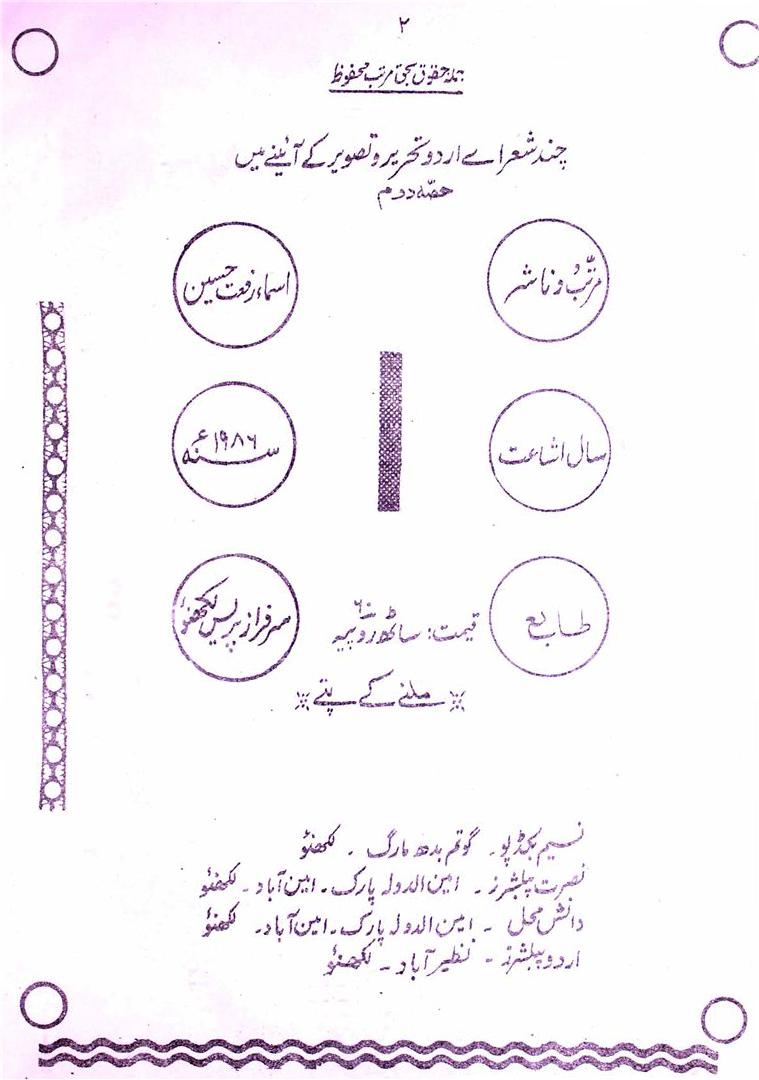 ۲
جملہ حقوق بحق مرتب محفوظ
چند شعراے اردو تحریر و تصویر کے آئینے میں
حصّہ دوم
مرتّب و ناشر
اسماء رفعت حسین
سال اشاعت
سنہ ۱۹۸۶ء
طابع
سرفراز پریس لکھنؤ
قیمت: ساٹھ روپیہ ۶۰
ملنے کے پتے
نسیم بکڈپو۔ گوتم بدھ مارگ ۔ لکھنؤ
نصرت پبلشرز۔ امین الدولہ پارک۔ امین آباد۔ لکھنؤ
دانش محل ۔ امین الدولہ پارک۔ امین آباد۔ لکھنؤ
اردو پبلشرز۔ نظیر آباد۔ لکھنؤ